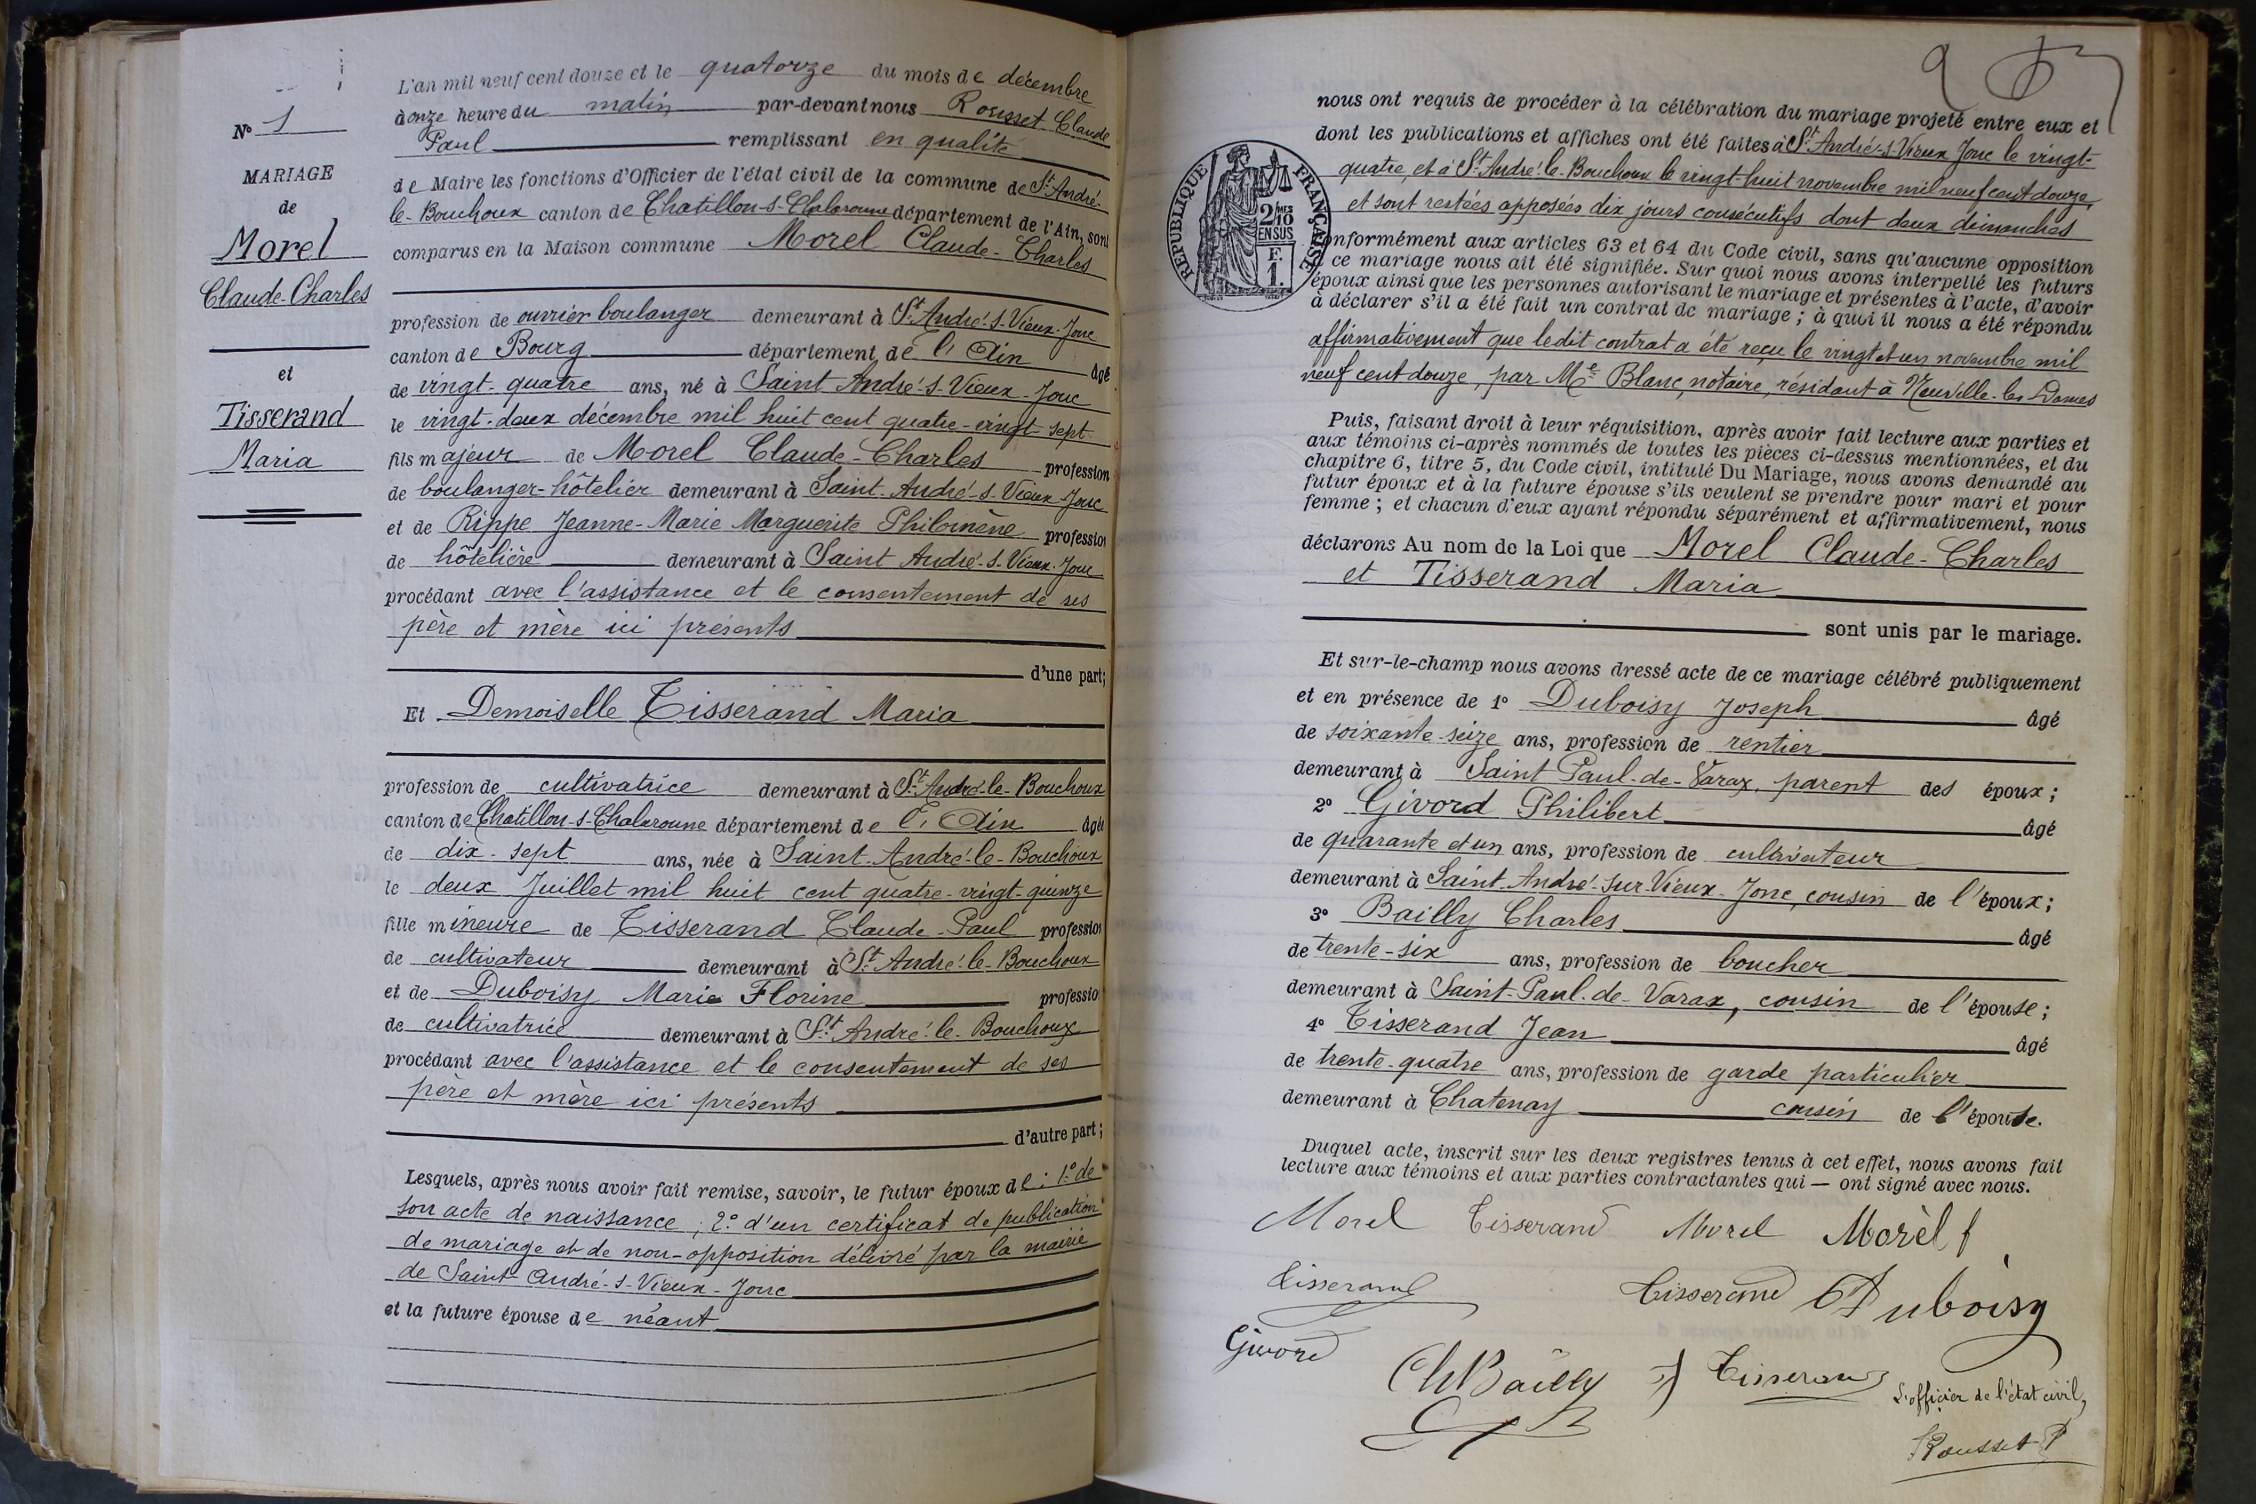 N° 1
MARIAGE
de
Morel
Claude-Charles
et
Tisserand
Maria
L'an mil neuf cent douze et le quatorze du mois de décembre
à onze heure du matin par-devant nous Rousset Claude
Paul remplissant en qualité
de Maire les fonctions d'Officier de l'état civil de la commune de St André-
le-Bouchoux canton de Chatillon-s-Chalaronne département de l'Ain, sont
comparus en la Maison commune Morel Claude-Charles
profession de ouvrier boulanger demeurant à St André-s-Vieux-Jonc
canton de Bourg département de l'Ain âgé
de vingt-quatre ans, né à Saint André-s-Vieux-Jonc
le vingt-deux décembre mil huit cent quatre-vingt-sept
fils majeur de Morel Claude-Charles profession
de boulanger-hôtelier demeurant à Saint-André-s-Vieux-Jonc
et de Rippe Jeanne-Marie Marguerite Philomène profession
de hôtelière demeurant à Saint André-s-Vieux-Jonc
procédant avec l'assistance et le consentement de ses
père et mère ici présents
d'une part;
Et Demoiselle Tisserand Maria
profession de cultivatrice demeurant à St André-le-Bouchoux
canton de Chatillon-s-Chalaronne département de l'Ain âgée
de dix-sept ans, née à Saint-André-le-Bouchoux
le deux Juillet mil huit cent quatre-vingt-quinze
fille mineure de Tisserand Claude-Paul profession
de cultivateur demeurant à St André-le-Bouchoux
et de Duboisy Marie Florine professio
de cultivatrice demeurant à St André-le-Bouchoux
procédant avec l'assistance et le consentement de ses
père et mère ici présents
d'autre part;
Lesquels, après nous avoir fait remise, savoir, le futur époux de : 1° de
son acte de naissance ; 2° d'un certificat de publication
de mariage et de non-opposition délivré par la mairie
de Saint-André-s-Vieux-Jonc
et la future épouse de néant
RÉPUBLIQUE FRANÇAISE
2/10 MES
EN SUS
F.
1.
nous ont requis de procéder à la célébration du mariage projeté entre eux et
dont les publications et affiches ont été faites à St André-s-Vieux Jonc le vingt-
quatre, et à St André-le-Bouchoux le vingt-huit novembre mil neuf cent douze,
et sont restées apposées dix jours consécutifs dont deux dimanches
conformément aux articles 63 et 64 du Code civil, sans qu'aucune opposition
à ce mariage nous ait été signifiée. Sur quoi nous avons interpellé les futurs
époux ainsi que les personnes autorisant le mariage et présentes à l'acte, d'avoir
à déclarer s'il a été fait un contrat de mariage ; à quoi il nous a été répondu
affirmativement que ledit contrat a été reçu le vingt et un novembre mil
neuf cent douze, par Me Blanc, notaire, résidant à Neuville-les-Dames
Puis, faisant droit à leur réquisition, après avoir fait lecture aux parties et
aux témoins ci-après nommés de toutes les pièces ci-dessus mentionnées, et du
chapitre 6, titre 5, du Code civil, intitulé Du Mariage, nous avons demandé au
futur époux et à la future épouse s'ils veulent se prendre pour mari et pour
femme ; et chacun d'eux ayant répondu séparément et affirmativement, nous
déclarons Au nom de la Loi que Morel Claude-Charles
et Tisserand Maria
sont unis par le mariage.
Et sur-le-champ nous avons dressé acte de ce mariage célébré publiquement
et en présence de 1° Duboisy Joseph âgé
de soixante-seize ans, profession de rentier
demeurant à Saint Paul-de-Varax, parent des époux ;
2° Givord Philibert âgé
de quarante et un ans, profession de cultivateur
demeurant à Saint-André-sur-Vieux-Jonc, cousin de l'époux ;
3° Bailly Charles âgé
de trente-six ans, profession de boucher
demeurant à Saint-Paul-de-Varax, cousin de l'épouse ;
4° Tisserand Jean âgé
de trente-quatre ans, profession de garde particulier
demeurant à Chatenay cousin de l'épouse.
Duquel acte, inscrit sur les deux registres tenus à cet effet, nous avons fait
lecture aux témoins et aux parties contractantes qui — ont signé avec nous.
Morel Tisserand Morel Morèl f
Tisserand Tisserand Duboisy
Givord
Ch Bailly Tisserand
L'officier de l'état civil,
Rousset P